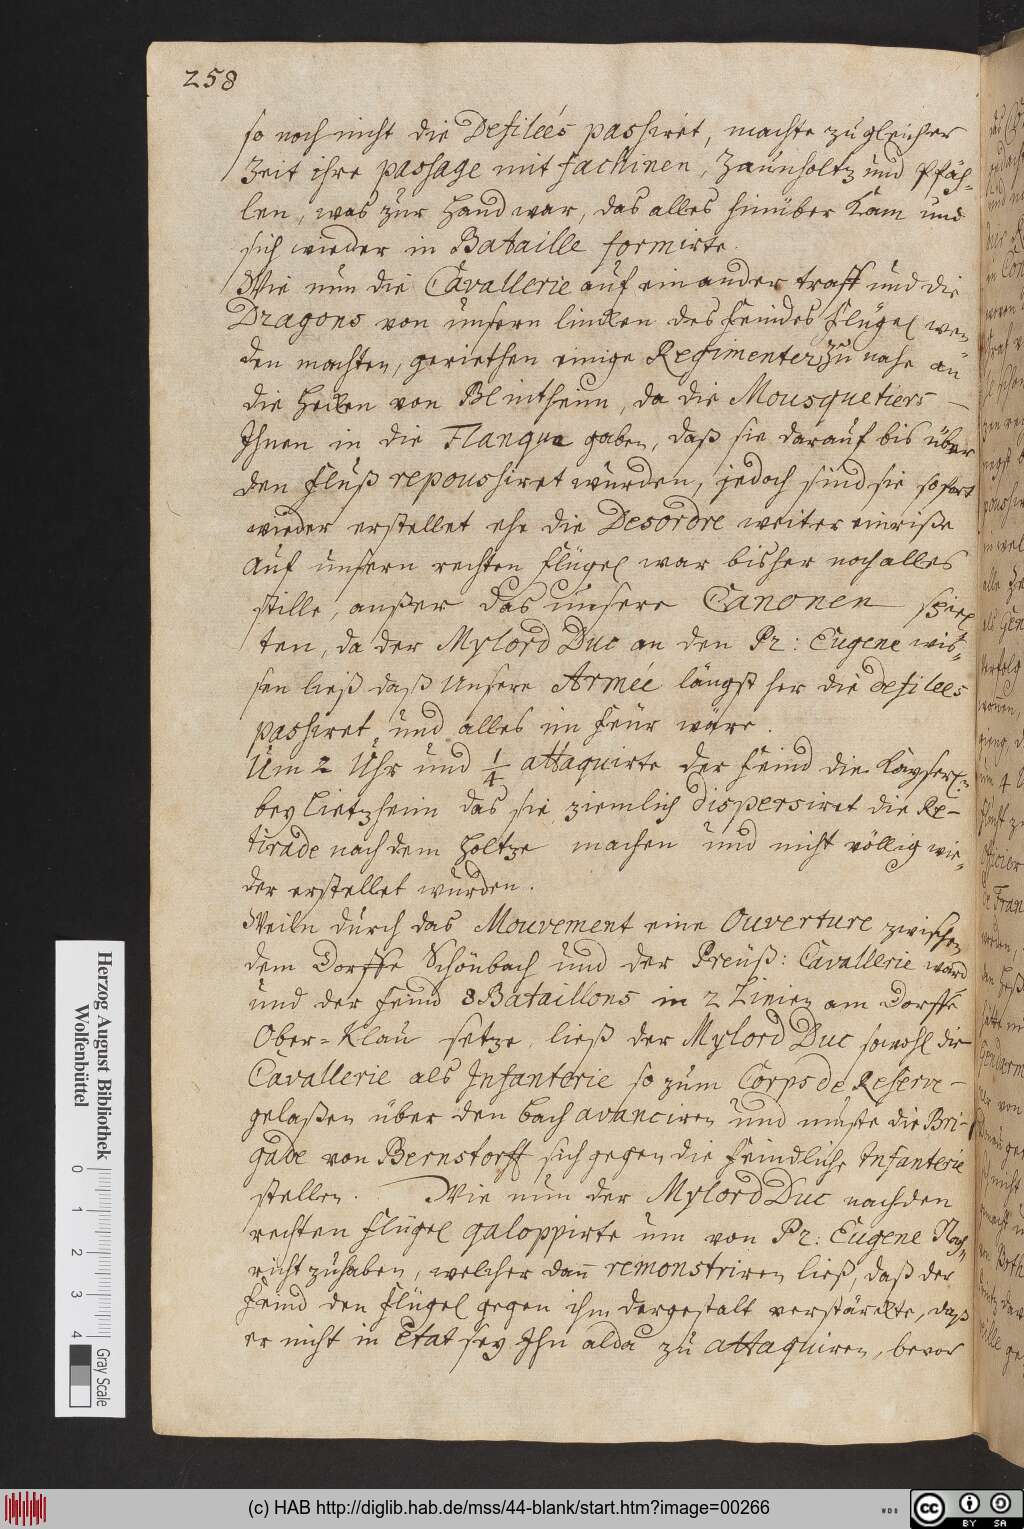 258
so noch nicht die Defileés passiret, machte zu gleicher
Zeit ihre passage mit fachinen, Zaunholtz und Pfäh-
len, was zur Hand war, das alles hinüber kam und
sich wieder in Bataille formirte.
Wie nun die Cavallerie auf einander traff und die
Dragons von unsern lincken des Feindes Flügel wen-
den machten, geriethen einige Regimenter zu nahe an
die Hecken von Blintheim, da die Mousquetiers
Ihnen in die Flanque gaben, daß sie darauf bis über
den Fluß repoussiret wurden, jedoch sind sie sofort
wieder erstellet ehe die Desordre weiter einriße
Auf unsern rechten Flügel war bisher noch alles
stille, außer das unsere Canonen spiel
ten, da der Mylord Duc an den Pr: Eugene wis-
sen ließ daß Unsere Armeé längst her die defilees
passiret und alles im Feür wäre.
Um 2 Uhr und 1/4 attaquirte der Feind die Kayserl:
bey Lietzheim das sie ziemlich dispersiret die Re-
tirade nach dem Holtze machen und nicht völlig wie-
der erstellet wurden.
Weiln durch das Mouvement eine Ouverture zwischen
dem Dorffe Schönbach und der Preüß: Cavallerie ward
und der Feind 8 Bataillons in 2 Linien am Dorffe
Ober-Klau setze, ließ der Mylord Duc sowohl die
Cavallerie als Infanterie so zum Corps de Reserve
gelaßen über den bach avanciren und muste die Bri-
gade von Bernstorff sich gegen die Feindliche Infanterie
stellen. Wie nun der Mylord Duc nach den
rechten Flügel galoppirte um von Pr: Eugene Nach-
richt zu haben, welcher dann remonstriren ließ, daß der
Feind den Flügel gegen ihm dergestalt verstärckte, daß
er nicht in Etat sey Ihn alda zu attaquiren, bevor
Herzog August Bibliothek
Wolfenbüttel
0 1 2 3 4 Gray Scale
(c) HAB http://diglib.hab.de/mss/44-blank/start.htm?image=00266
WDB
cc BY SA